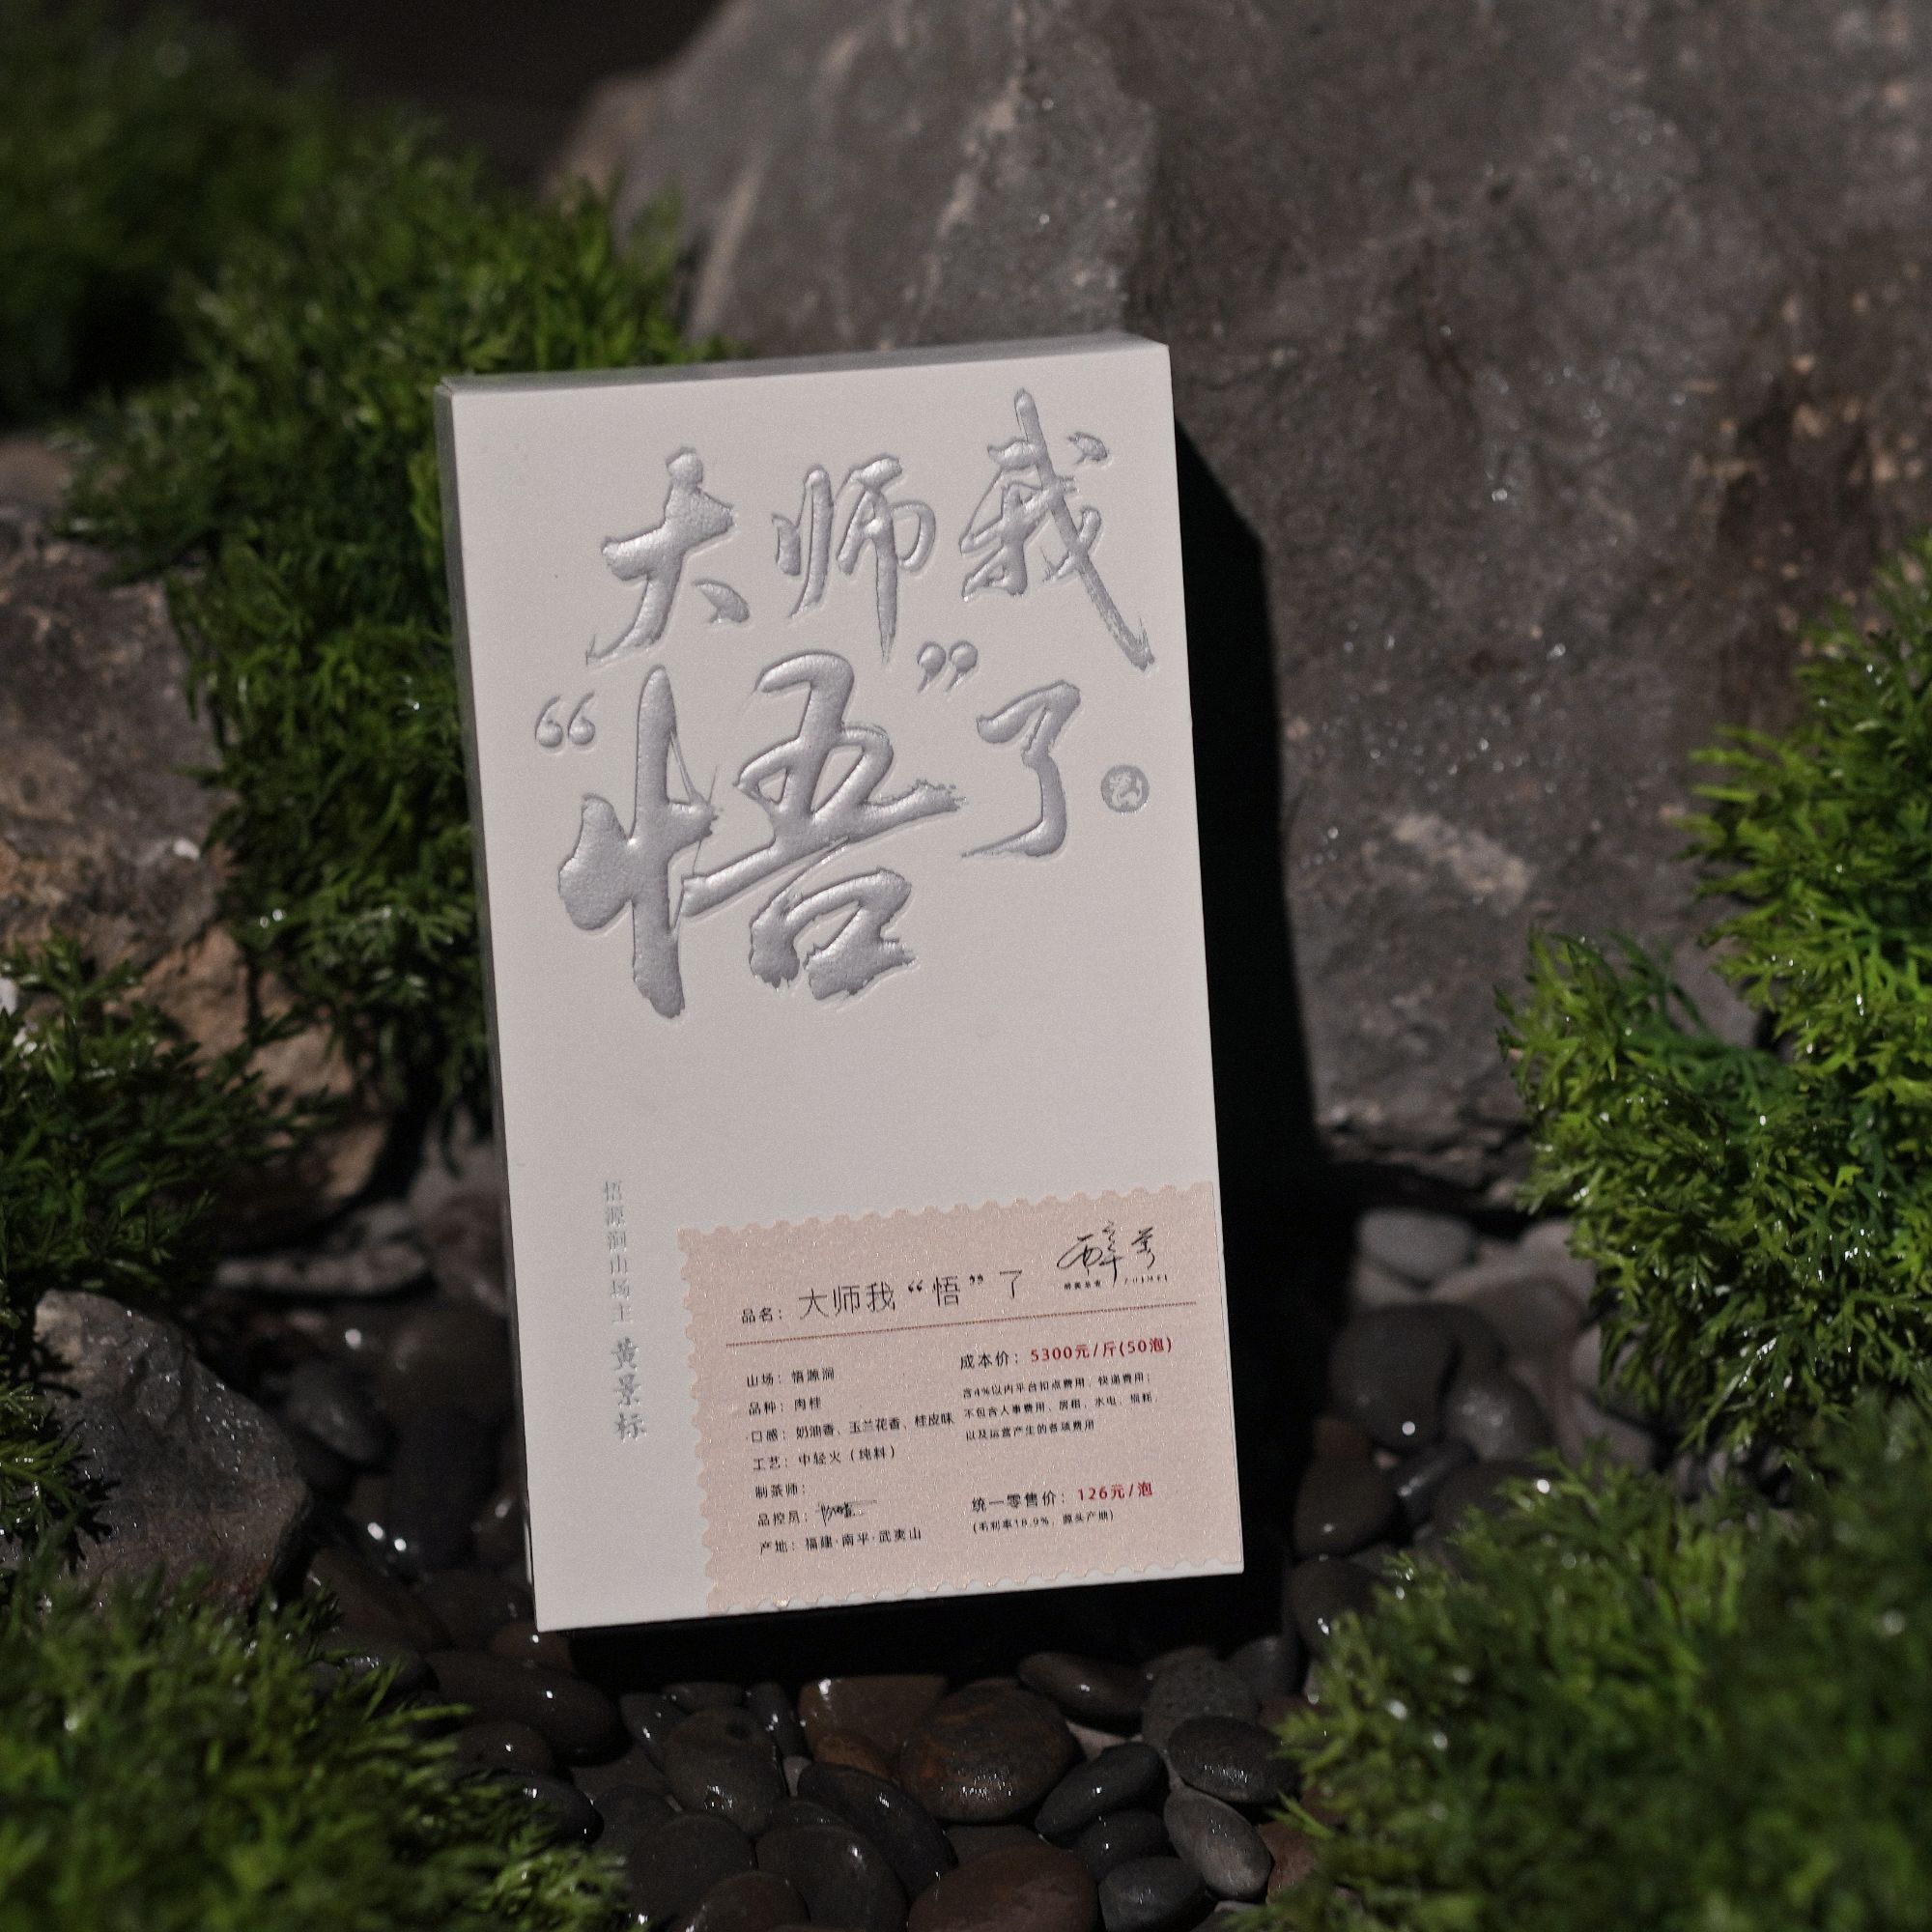 大师我
“悟”了
悟源涧山场主 黄景标
品名：大师我“悟”了
醉美
山场：悟源涧
品种：肉桂
口感：奶油香、玉兰花香、桂皮味
工艺：中轻火（纯料）
制茶师：
品控员：
产地：福建·南平·武夷山
成本价：5300元/斤(50泡)
含4%以内平台扣点费用、快递费用；
不包含人事费用、房租、水电、损耗、
以及运营产生的各项费用
统一零售价：126元/泡
(毛利率18.9%，源头产地)